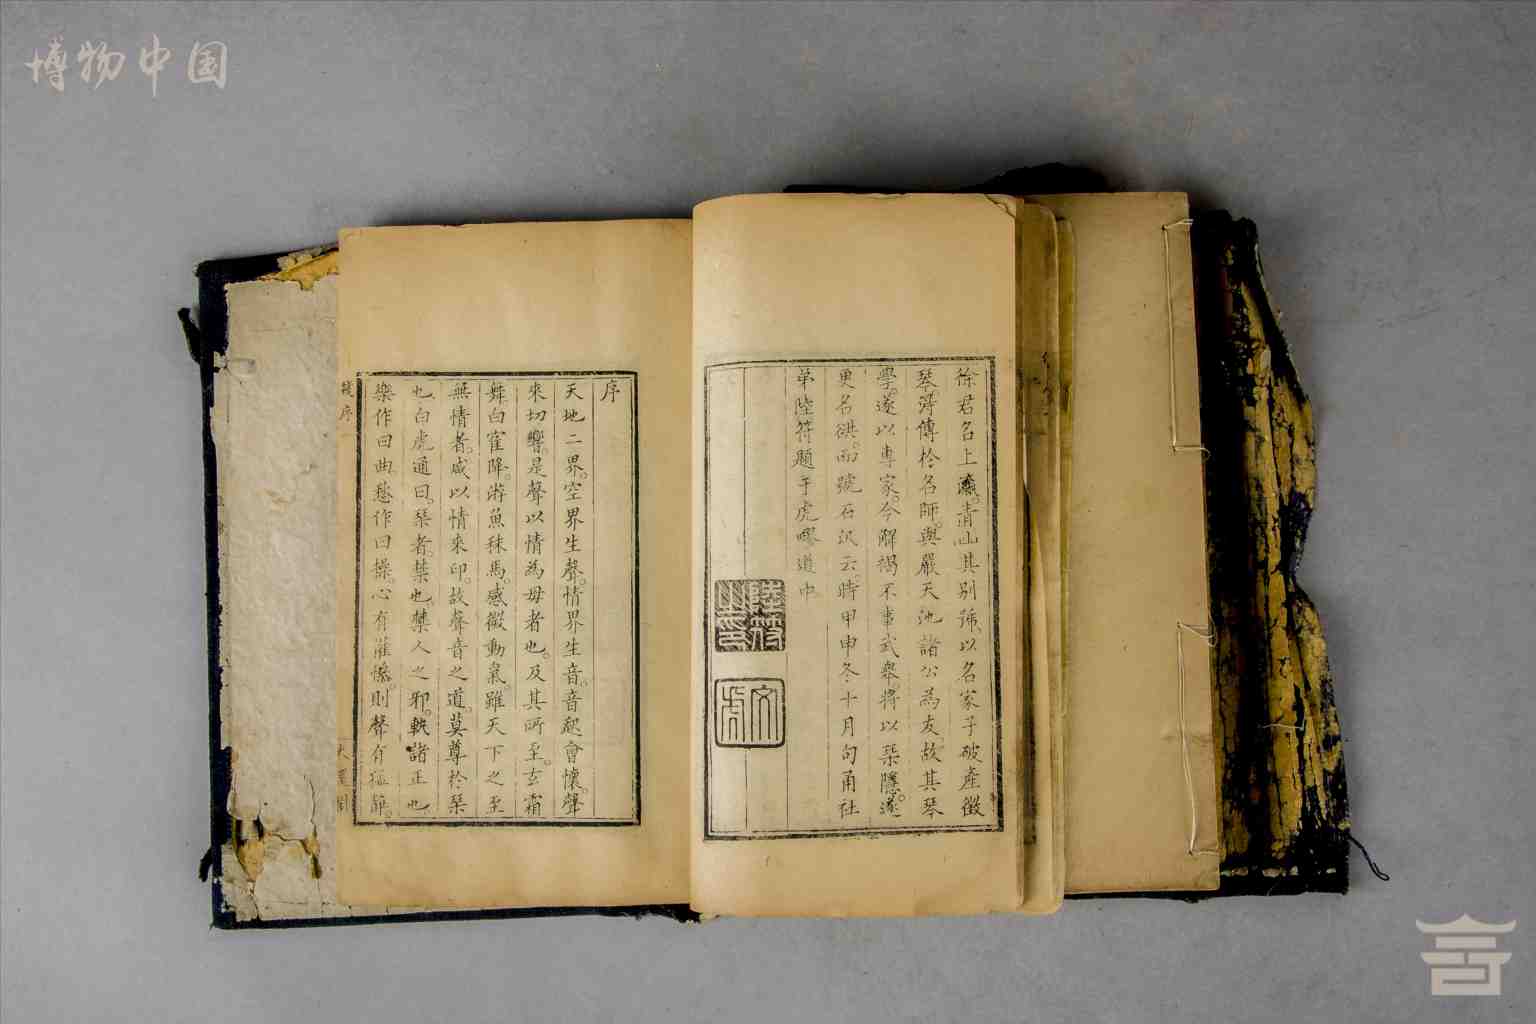 博物中国
徐君名上瀛。青山其别號。以名家子破產徵
琴。得傳於名師。與嚴天池諸公為友。故其琴
學。遂以專家。今解褐不事武舉。將以琴隱。遂
更名䃔。而號石汎云。時甲申冬十月句甬社
弟陸符題于虎嘐道中
陸符之印
文虎
序
天地二界。空界生聲。情界生音。音起會懷。聲
來切響。是聲以情為母者也。及其所至。玄霜
舞白寉降。游魚秣馬。感微動氣。雖天下之至
無情者。咸以情來印。故聲音之道。莫尊於琴
也。白虎通曰。琴者。禁也。禁人之邪。軌諸正也
樂作曰曲。愁作曰操。心有灌 則聲有 節。
後序 一
大還閣